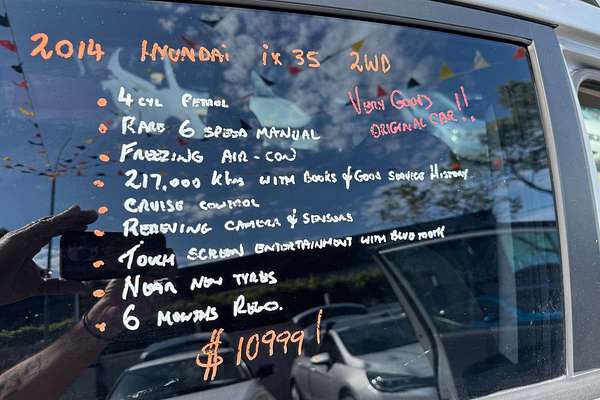 2014 HYUNDAI ix 35 2WD
VERY GOOD !!
ORIGINAL CAR..
• 4 CYL PETROL
• RARE 6 SPEED MANUAL
• FREEZING AIR-CON
• 217,000 Kms WITH BOOKS & GOOD SERVICE HISTORY
• CRUISE CONTROL
• REVERVING CAMERA & SENSORS
• TOUCH SCREEN ENTERTAINMENT WITH BLUETOOTH
• NEAR NEW TYRES
• 6 MONTHS REGO.
$10999!